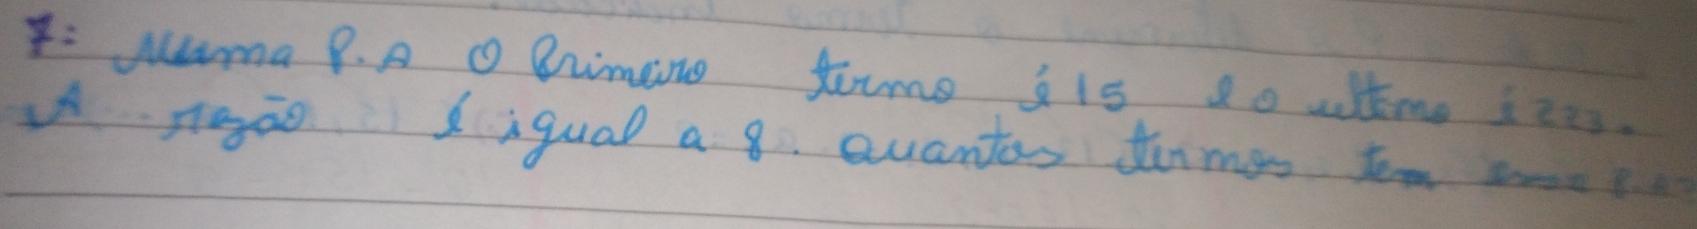 7: Numa P.A o Primeiro termo é 15 e o ultimo é 223.
A razão é igual a 8. quantos termos tem essa P.A?